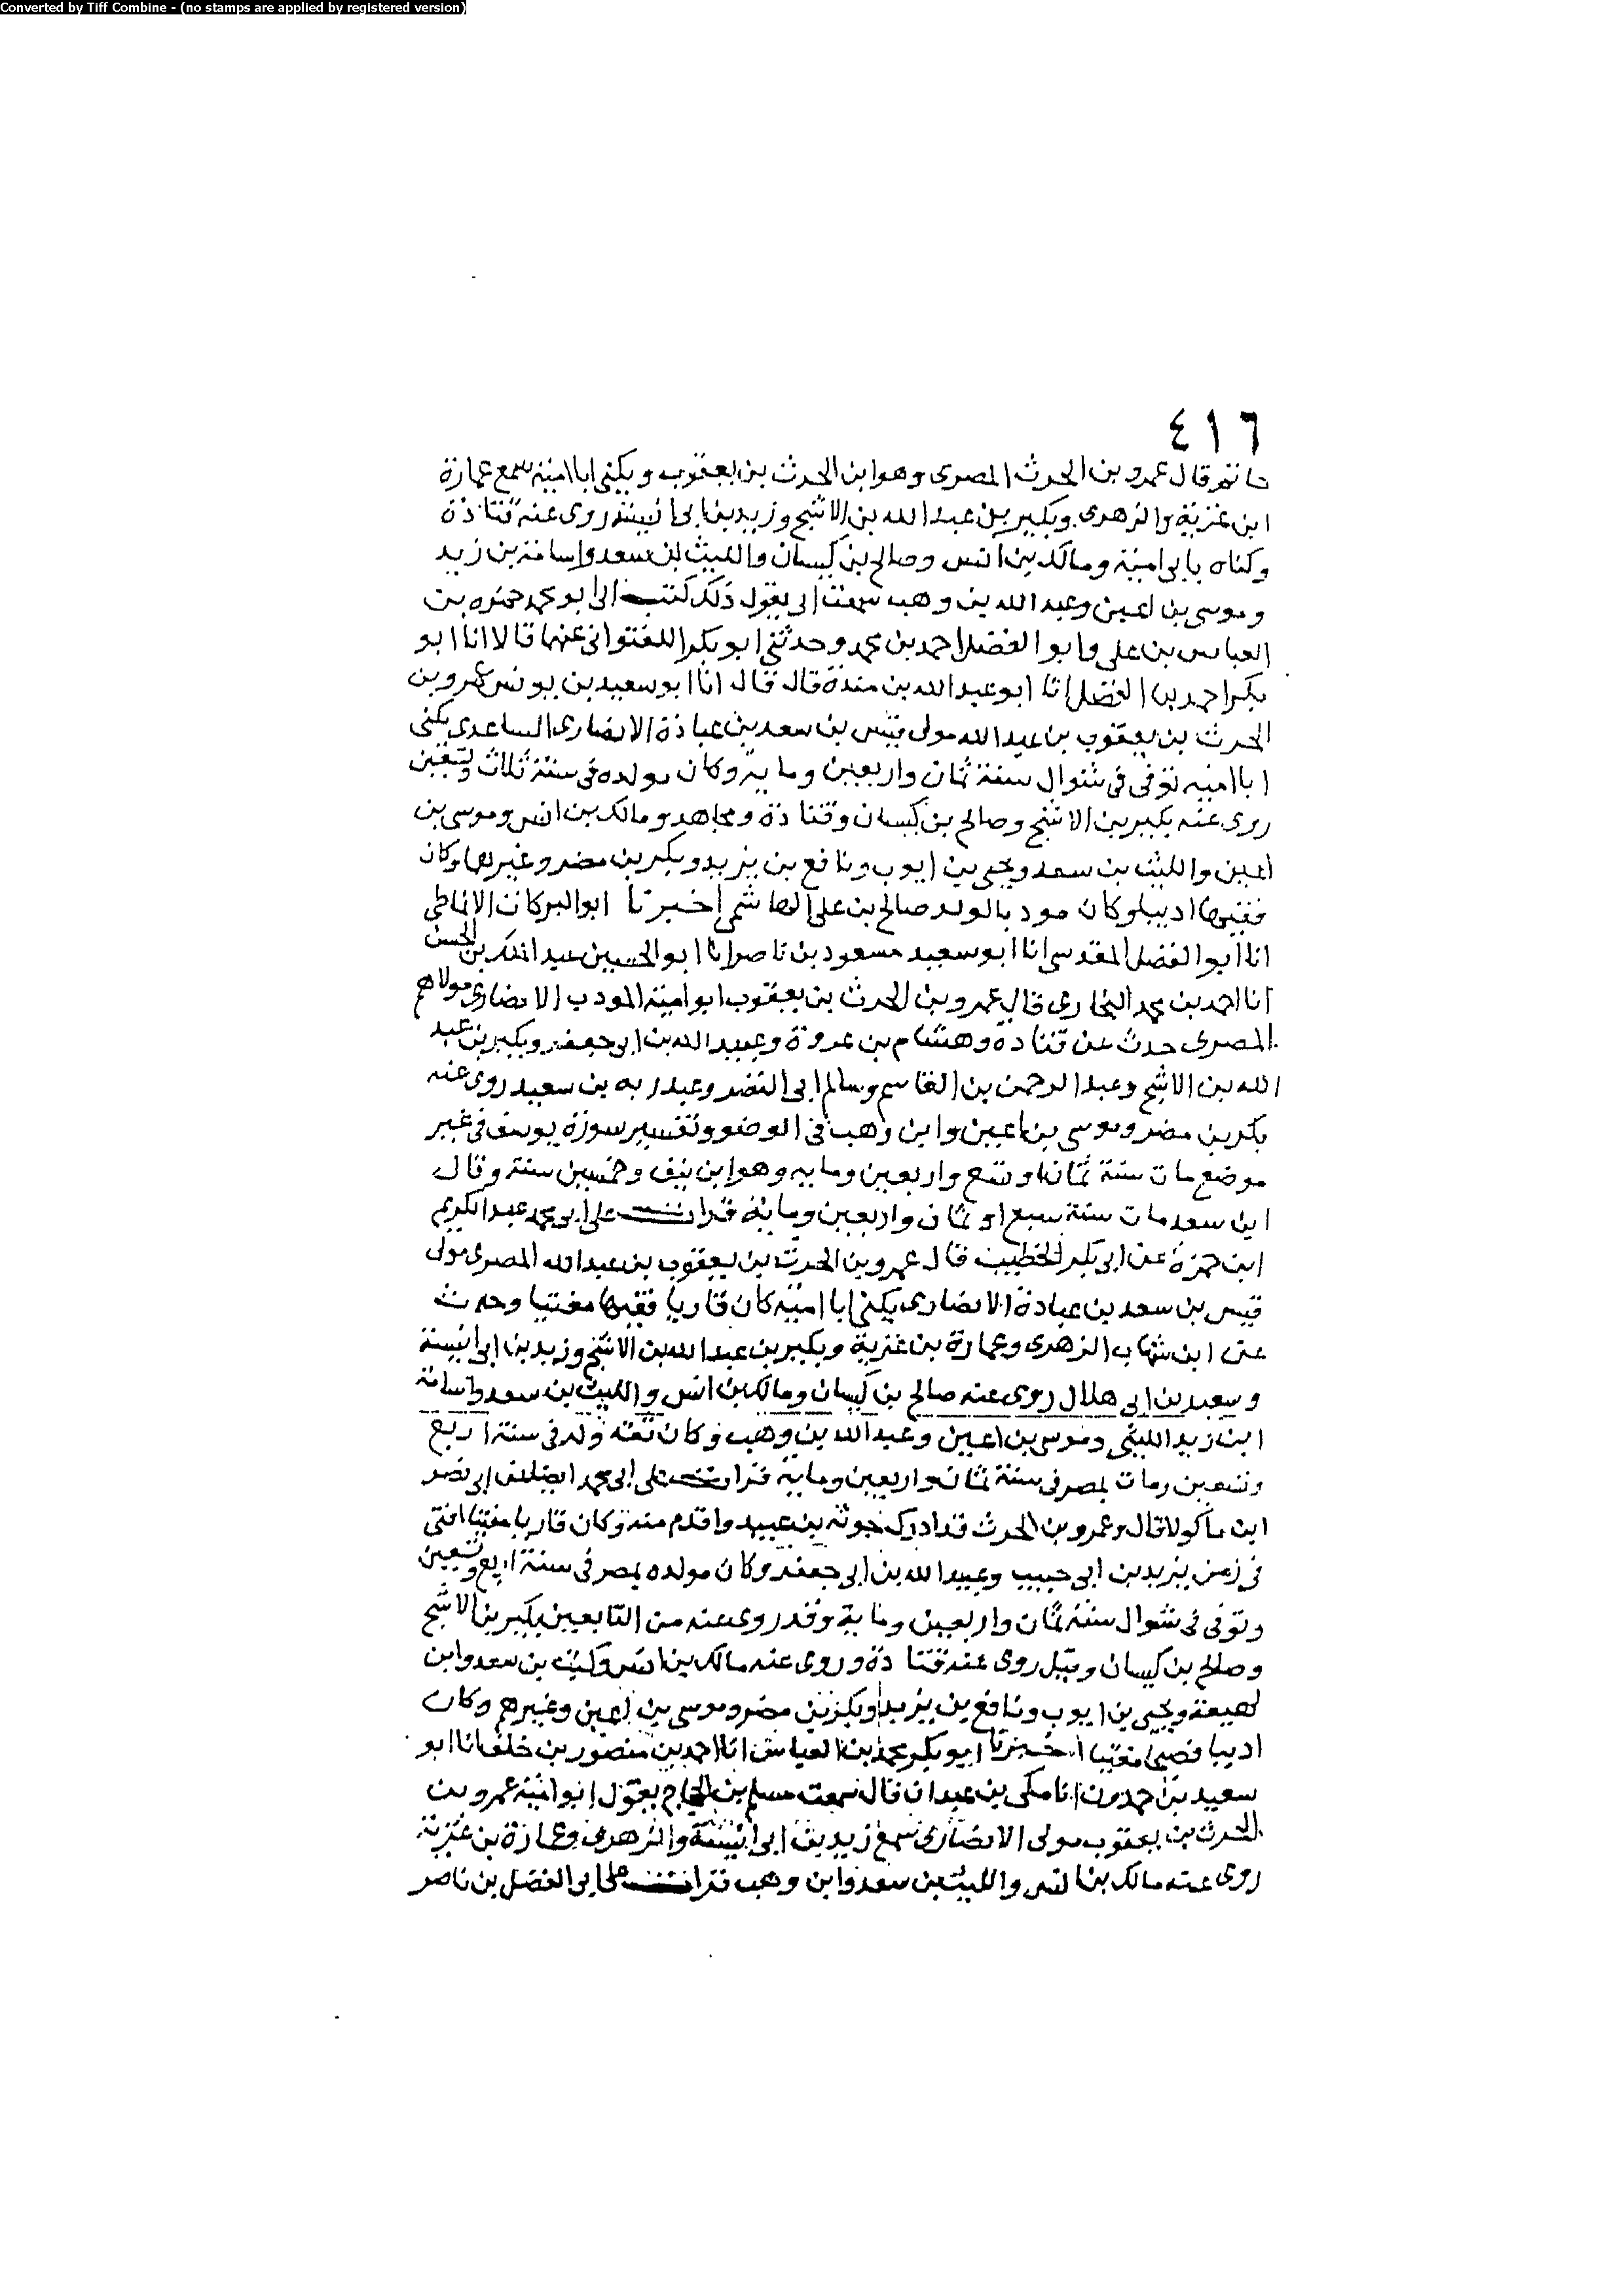 Converted by Tiff Combine - (no stamps are applied by registered version)
٤١٦
حاتم قال عمرو بن الحرث المصرى وهو ابن الحرث بن يعقوب ويكنى ابا امية سمع عمارة
ابن غزية والزهرى وبكير بن عبد الله بن الاشج وزيد بن ابى انيسة روى عنه قتادة
وكناه بابى امية ومالك بن انس وصالح بن كيسان والليث بن سعد واسامة بن زيد
وموسى بن اعين وعبد الله بن وهب سمعت ابى يقول ذلك كتب الى ابو محمد حمزه بن
العباس بن على وابو الفضل احمد بن محمد وحدثنى ابو بكر اللفتوانى عنهما قالا انا ابو
بكر احمد بن الفضل انا ابو عبد الله بن مندة قال قال انا ابو سعيد بن يونس عمرو بن
الحرث بن يعقوب بن عبد الله مولى قيس بن سعد بن عبادة الانصارى الساعدى يكنى
ابا اميه توفى فى شوال سنة ثمان واربعين وماية وكان مولده فى سنة ثلاث وتسعين
روى عنه بكير بن الاشج وصالح بن كيسان وقتادة ومجاهد ومالك بن انس وموسى بن
اعين والليث بن سعد ويحيى بن ايوب ونافع بن يزيد وبكر بن مضر وغيرهم وكان
فقيها اديبا وكان مودبا لولد صالح بن على الهاشمى اخبرنا ابو البركات الانماطى
انا ابو الفضل المقدسى انا ابو سعيد مسعود بن ناصر انا ابو الحسين عبد الملك بن الحسن
انا احمد بن محمد البخارى قال عمرو بن الحرث بن يعقوب ابو امية المودب الانصارى مولاهم
المصرى حدث عن قتادة وهشام بن عروة وعبيد الله بن ابى جعفر وبكير بن عبد
الله بن الاشج وعبد الرحمن بن القاسم وسالم ابى النضر وعبد ربه بن سعيد روى عنه
بكر بن مضر وموسى بن اعين وابن وهب فى الوضو وتفسير سورة يوسف فى غير
موضع مات سنة ثمان او تسع واربعين ومايه وهو ابن نيف وخمسين سنة وقال
ابن سعد مات سنة سبع او ثمان واربعين وماية قرات على ابى محمد عبد الكريم
ابن حمزة عن ابى بكر الخطيب قال عمرو بن الحرث بن يعقوب بن عبد الله المصرى مولى
قيس بن سعد بن عبادة الانصارى يكنى ابا امية كان قاريا فقيها مفتيا وحدث
عن ابن شهاب الزهرى وعمارة بن غزية وبكير بن عبد الله بن الاشج وزيد بن ابى انيسة
وسعيد بن ابى هلال روى عنه صالح بن كيسان ومالك بن انس والليث بن سعد واسامة
ابن زيد الليثى وموسى بن اعين وعبد الله بن وهب وكان ثقة ولد فى سنة اربع
وتسعين ومات بمصر فى سنة ثمان واربعين وماية قرات على ابى محمد ايضا عن ابى نصر
ابن ماكولا قال وعمرو بن الحرث قد ادرك جوثه بن عبيد واقدم منه وكان قاريا مفتيا افتى
فى زمن يزيد بن ابى حبيب وعبيد الله بن ابى جعفر وكان مولده بمصر فى سنة اربع وتسعين
وتوفى فى شوال سنة ثمان واربعين وماية وقد روى عنه من التابعين بكير بن الاشج
وصالح بن كيسان وقيل روى عنه قتادة وروى عنه مالك بن انس وليث بن سعد وابن
لهيعة ويحيى بن ايوب ونافع بن يزيد وبكر بن مضر وموسى بن اعين وغيرهم وكان
اديبا فصيحا مفتيا اخبرنا ابو بكر محمد بن العباس انا احمد بن منصور بن خلف انا ابو
سعيد بن حمدون انا مكى بن عبدان قال سمعت مسلم بن الحجاج يقول ابو امية عمرو بن
الحرث بن يعقوب مولى الانصارى سمع زيد بن ابى انيسة والزهرى وعمارة بن غزية
روى عنه مالك بن انس والليث بن سعد وابن وهب قرات على ابى الفضل بن ناصر